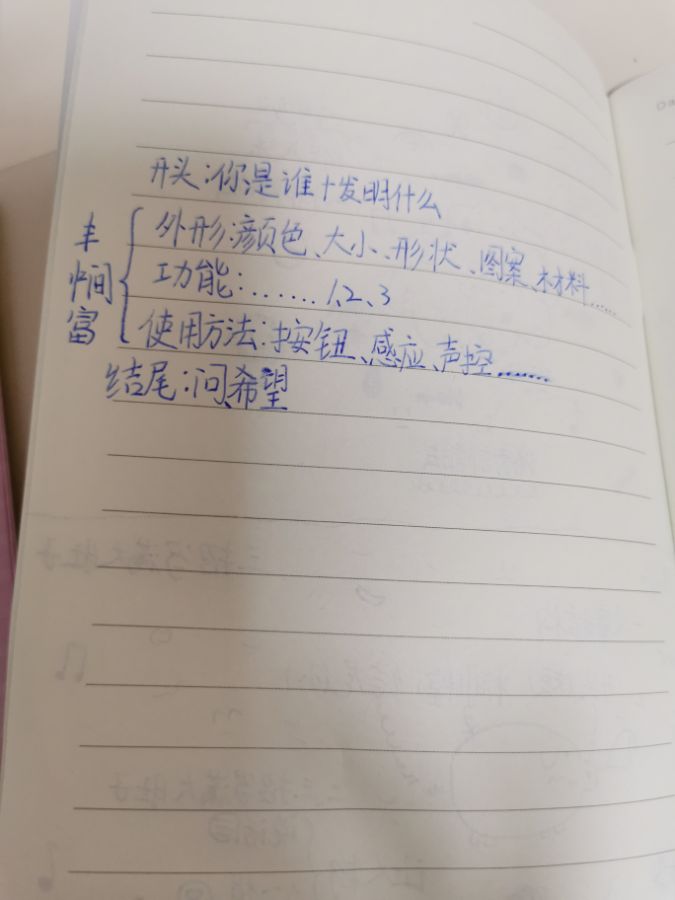 开头:你是谁+发明什么
丰中间富
外形:颜色、大小、形状、图案、材料……
功能:……1、2、3
使用方法:按钮、感应、声控……
结尾:问、希望